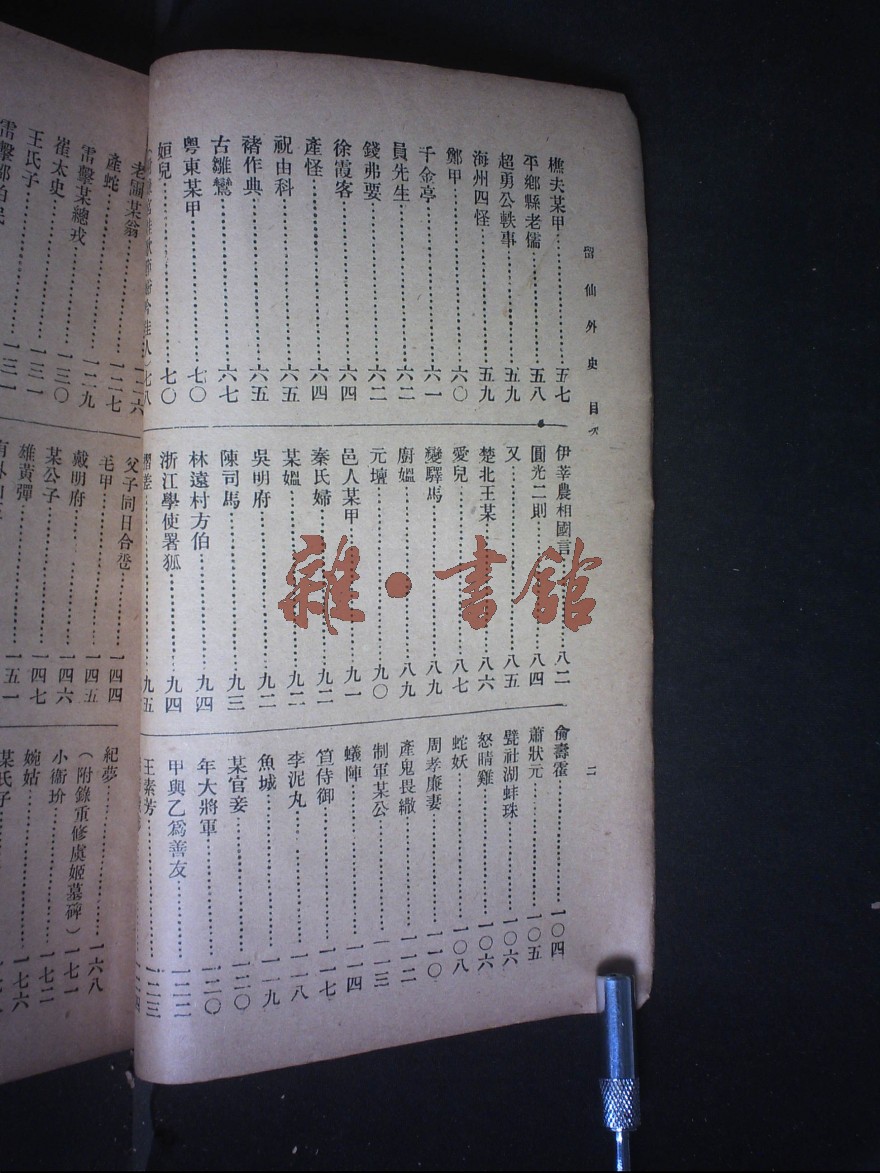 留仙外史 目次
二
樵夫某甲五七
平鄉縣老儒五八
超勇公軼事五九
海州四怪五九
鄭甲六〇
千金亭六一
員先生六二
錢弗要六二
徐霞客六四
產怪六四
祝由科六五
褚作典六五
古雛鸞六七
粵東某甲七〇
姮兒七〇
七八
伊莘農相國言八二
圓光二則八四
又八五
楚北王某八六
愛兒八七
變驛馬八九
廚媼八九
元壇九〇
邑人某甲九一
秦氏婦九二
某媼九二
吳明府九二
陳司馬九三
林遠村方伯九四
浙江學使署狐九四
九五
俞壽霍一〇四
蕭狀元一〇五
甓社湖蚌珠一〇六
怒晴雞一〇六
蛇妖一〇八
周孝廉妻一一〇
產鬼畏繖一一二
制軍某公一一三
蟻陣一一四
笪侍御一一七
李泥丸一一八
魚城一一九
某官妾一二〇
年大將軍一二〇
甲與乙爲善友一二二
王素芳一二三
老圃某翁一二六
產蛇一二七
雷擊某總戎一二九
崔太史一三〇
王氏子一三一
一三一
父子同日合巹一四四
毛甲一四五
戴明府一四六
某公子一四七
雄黃彈一五一
紀夢一六八
(附錄重修虞姬墓碑)一七一
小衞玠一七二
婉姑一七六
某氏子
雜·書館